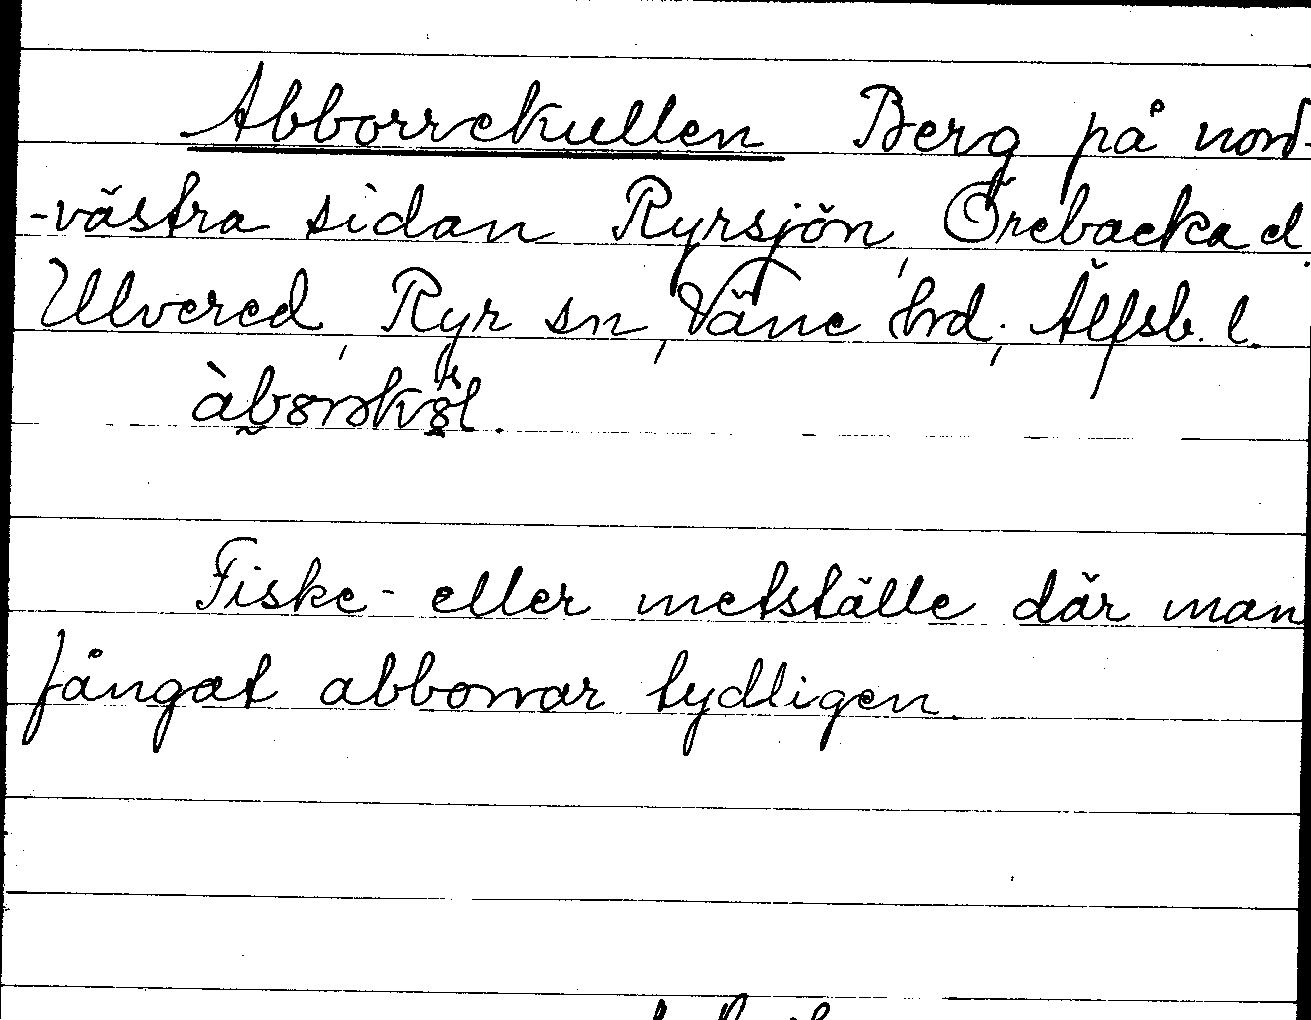 Abborrekullen Berg på nord-
-västra sidan Ryrsjön, Örebacka el.
Ulvered, Ryr sn, Väne hrd; Älfsb. l.
Fiske- eller metställe där man
fångat abborrar tydligen.